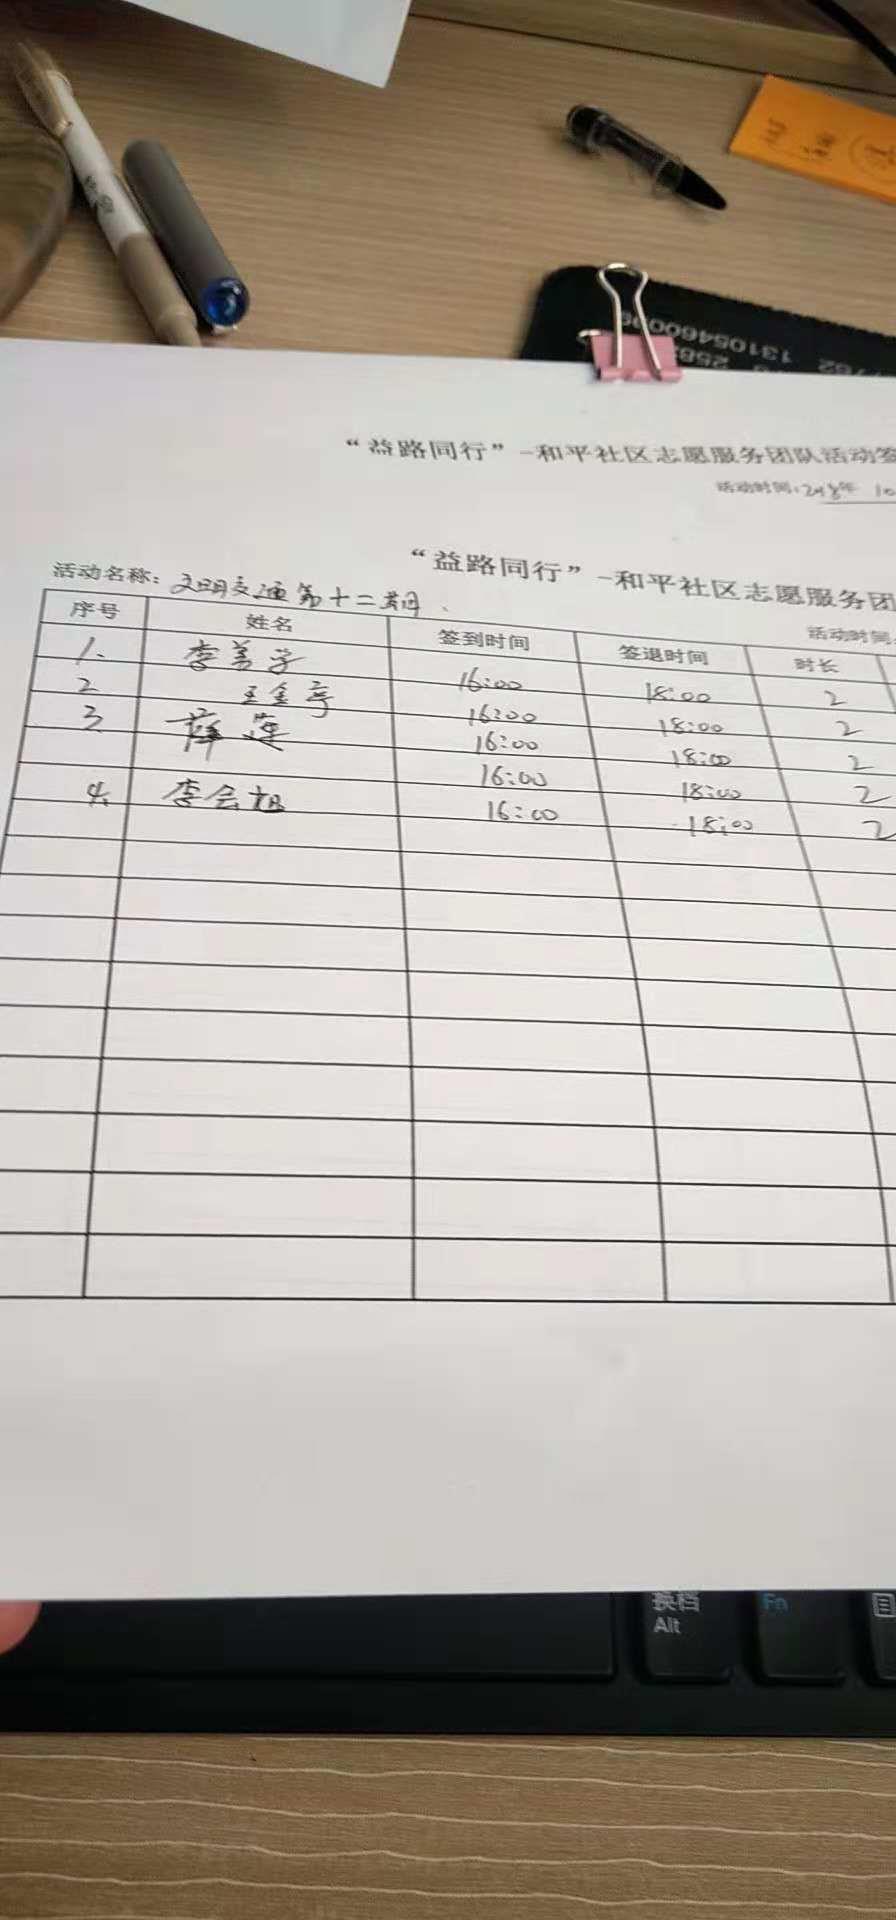 1310546009
“益路同行”-和平社区志愿服务团队活动签
活动时间:2018年 10
“益路同行”-和平社区志愿服务团
活动名称: 文明交通第十二期
活动时间
序号 姓名 签到时间 签退时间 时长
1. 李美子 16:00 18:00 2
2 王金亭 16:00 18:00 2
3 薛莲 16:00 18:00 2
16:00 18:00 2
4. 李会旭 16:00 18:00 2
换档 Fn
Alt